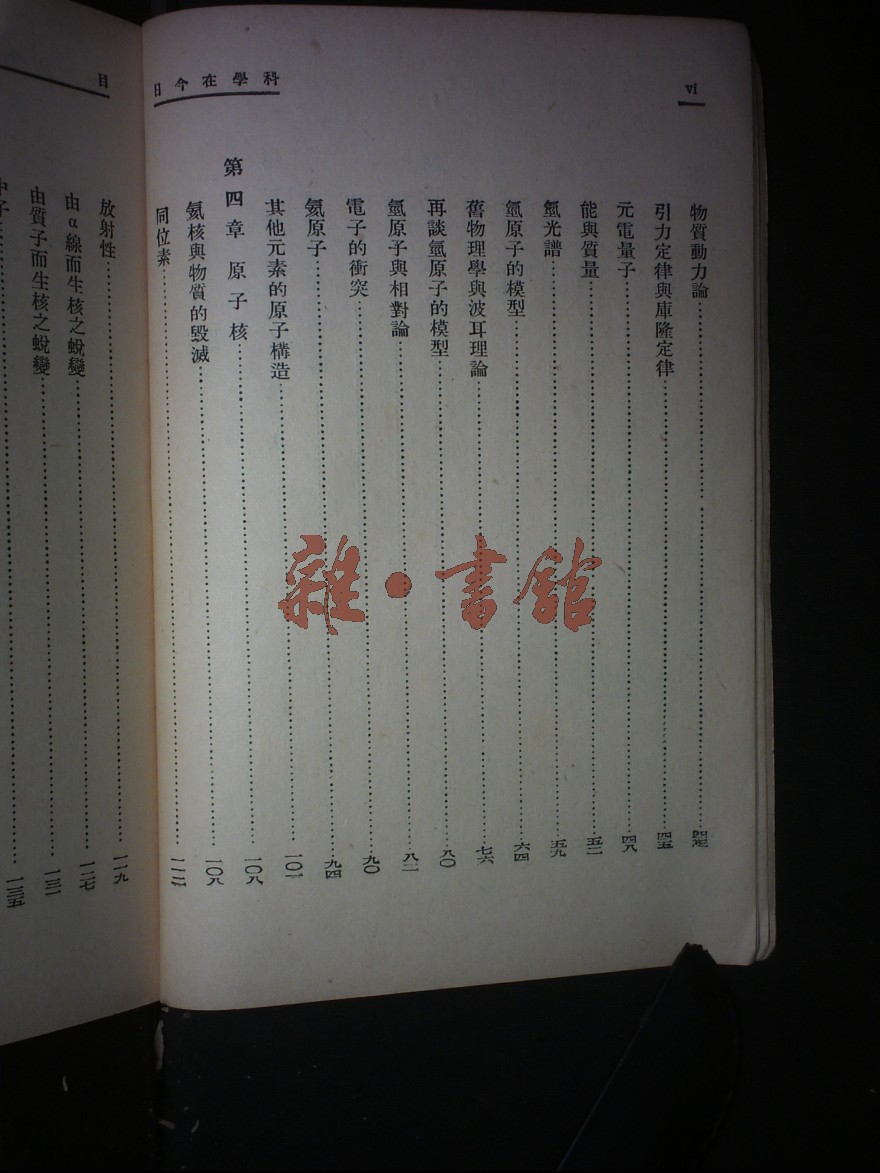 vi
科學在今日
物質動力論
引力定律與庫隆定律……四五
元電量子……四八
能與質量……五二
氫光譜……五九
氫原子的模型……六四
舊物理學與波耳理論……七六
再談氫原子的模型……八〇
氫原子與相對論……八二
電子的衝突……九〇
氦原子……九四
其他元素的原子構造……一〇一
第四章 原子核……一〇八
氦核與物質的毀滅……一〇八
同位素……一一二
目
放射性……一一九
由α線而生核之蛻變……一二七
由質子而生核之蛻變……一三一
中子……一三五
雜·書館